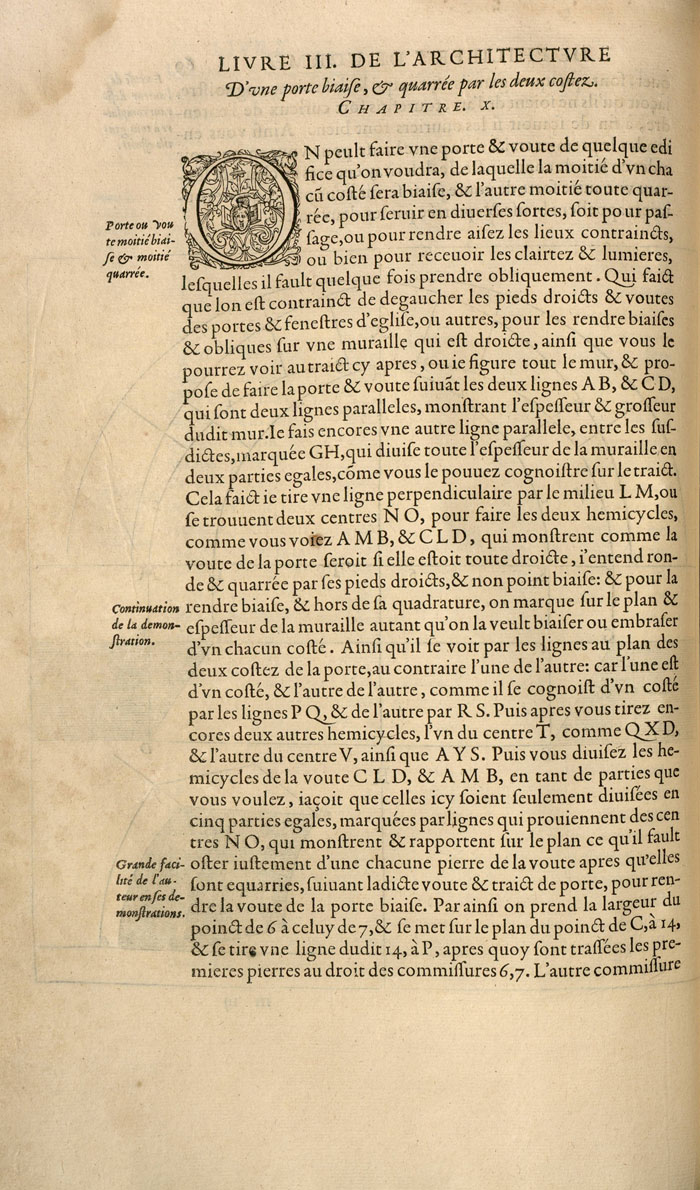 LIVRE III. DE L'ARCHITECTVRE
D'vne porte biaiſe, & quarrée par les deux coſtez.
CHAPITRE. X.
ON peult faire vne porte & voute de quelque edi
fice qu'on voudra, de laquelle la moitié d'vn cha
cū coſté ſera biaiſe, & l'autre moitié toute quar-
rée, pour ſeruir en diuerſes ſortes, ſoit pour paſ-
ſage, ou pour rendre aiſez les lieux contraincts,
ou bien pour receuoir les clairtez & lumieres,
Porte ou vou
te moitié biai-
ſe & moitié
quarrée.
leſquelles il fault quelque fois prendre obliquement. Qui faict
que lon eſt contrainct de degaucher les pieds droicts & voutes
des portes & feneſtres d'egliſe, ou autres, pour les rendre biaiſes
& obliques ſur vne muraille qui eſt droicte, ainſi que vous le
pourrez voir au traict cy apres, ou ie figure tout le mur, & pro-
poſe de faire la porte & voute ſuiuāt les deux lignes AB, & CD,
qui ſont deux lignes paralleles, monſtrant l'eſpeſſeur & groſſeur
dudit mur. Ie fais encores vne autre ligne parallele, entre les ſuſ-
dictes, marquée GH, qui diuiſe toute l'eſpeſſeur de la muraille en
deux parties egales, cōme vous le pouuez cognoiſtre ſur le traict.
Cela faict ie tire vne ligne perpendiculaire par le milieu L M, ou
ſe trouuent deux centres N O, pour faire les deux hemicycles,
comme vous voiez A M B, & C L D, qui monſtrent comme la
voute de la porte ſeroit ſi elle eſtoit toute droicte, i'entend ron-
de & quarrée par ſes pieds droicts, & non point biaiſe: & pour la
rendre biaiſe, & hors de ſa quadrature, on marque ſur le plan &
eſpeſſeur de la muraille autant qu'on la veult biaiſer ou embraſer
d'vn chacun coſté. Ainſi qu'il ſe voit par les lignes au plan des
Continuation
de la demon-
ſtration.
deux coſtez de la porte, au contraire l'une de l'autre: car l'une eſt
d'vn coſté, & l'autre de l'autre, comme il ſe cognoiſt d'vn coſté
par les lignes P Q, & de l'autre par R S. Puis apres vous tirez en-
cores deux autres hemicycles, l'vn du centre T, comme QXD,
& l'autre du centre V, ainſi que A Y S. Puis vous diuiſez les he-
micycles de la voute C L D, & A M B, en tant de parties que
vous voulez, iaçoit que celles icy ſoient ſeulement diuiſées en
cinq parties egales, marquées par lignes qui prouiennent des cen
tres N O, qui monſtrent & rapportent ſur le plan ce qu'il fault
oſter iuſtement d'une chacune pierre de la voute apres qu'elles
ſont equarries, ſuiuant ladicte voute & traict de porte, pour ren-
dre la voute de la porte biaiſe. Par ainſi on prend la largeur du
Grande faci-
lité de l'au-
teur en ſes de-
monſtrations.
poinct de 6 à celuy de 7, & ſe met ſur le plan du poinct de C, à 14,
& ſe tire vne ligne dudit 14, à P, apres quoy ſont traſſées les pre-
mieres pierres au droit des commiſſures 6, 7. L'autre commiſſure